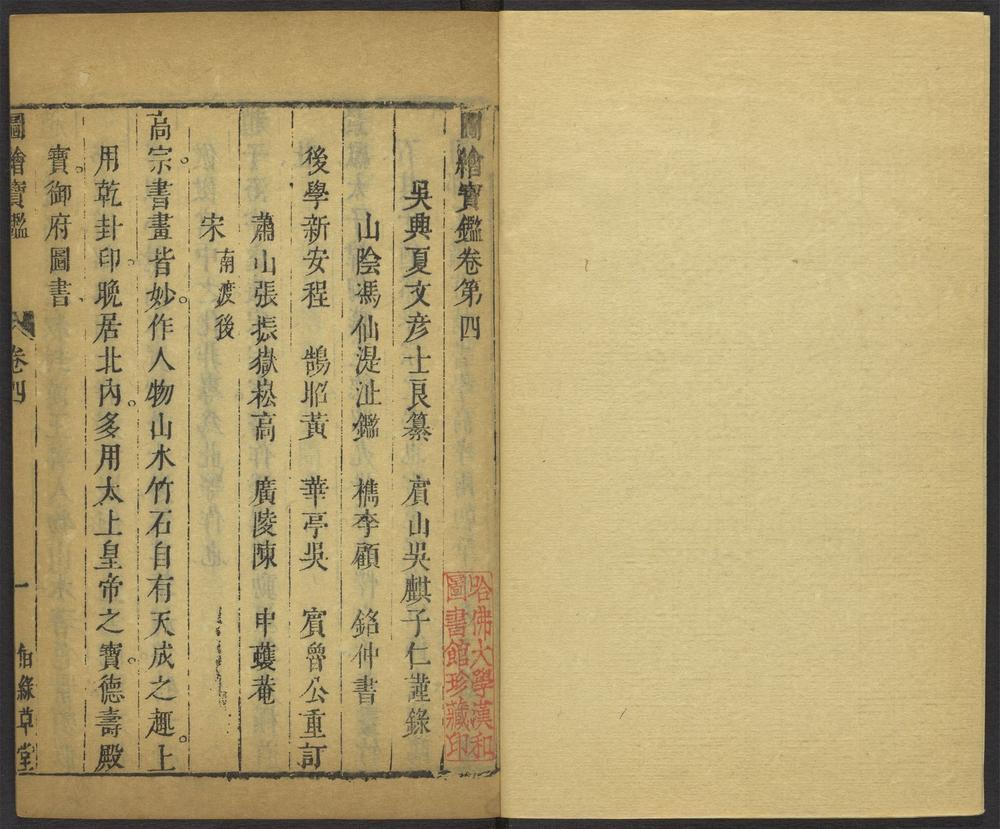 圖繪寶鑑卷第四
吳興夏文彦士良纂　賔山吳麒子仁謹錄
山陰馮仙湜沚鑑　檇李顧　銘仲書
後學新安程　鵠昭黃　華亭吳　賓魯公重訂
蕭山張振嶽崧高　廣陵陳　申蠖菴
宋南渡後
高宗。書畫皆妙。作人物山水竹石自有天成之趣。上
用乾卦印。晚居北內。多用太上皇帝之寶。德壽殿
寶。御府圖書、
圖繪寶鑑　卷四　一　借綠草堂
哈佛大學漢和
圖書館珍藏印